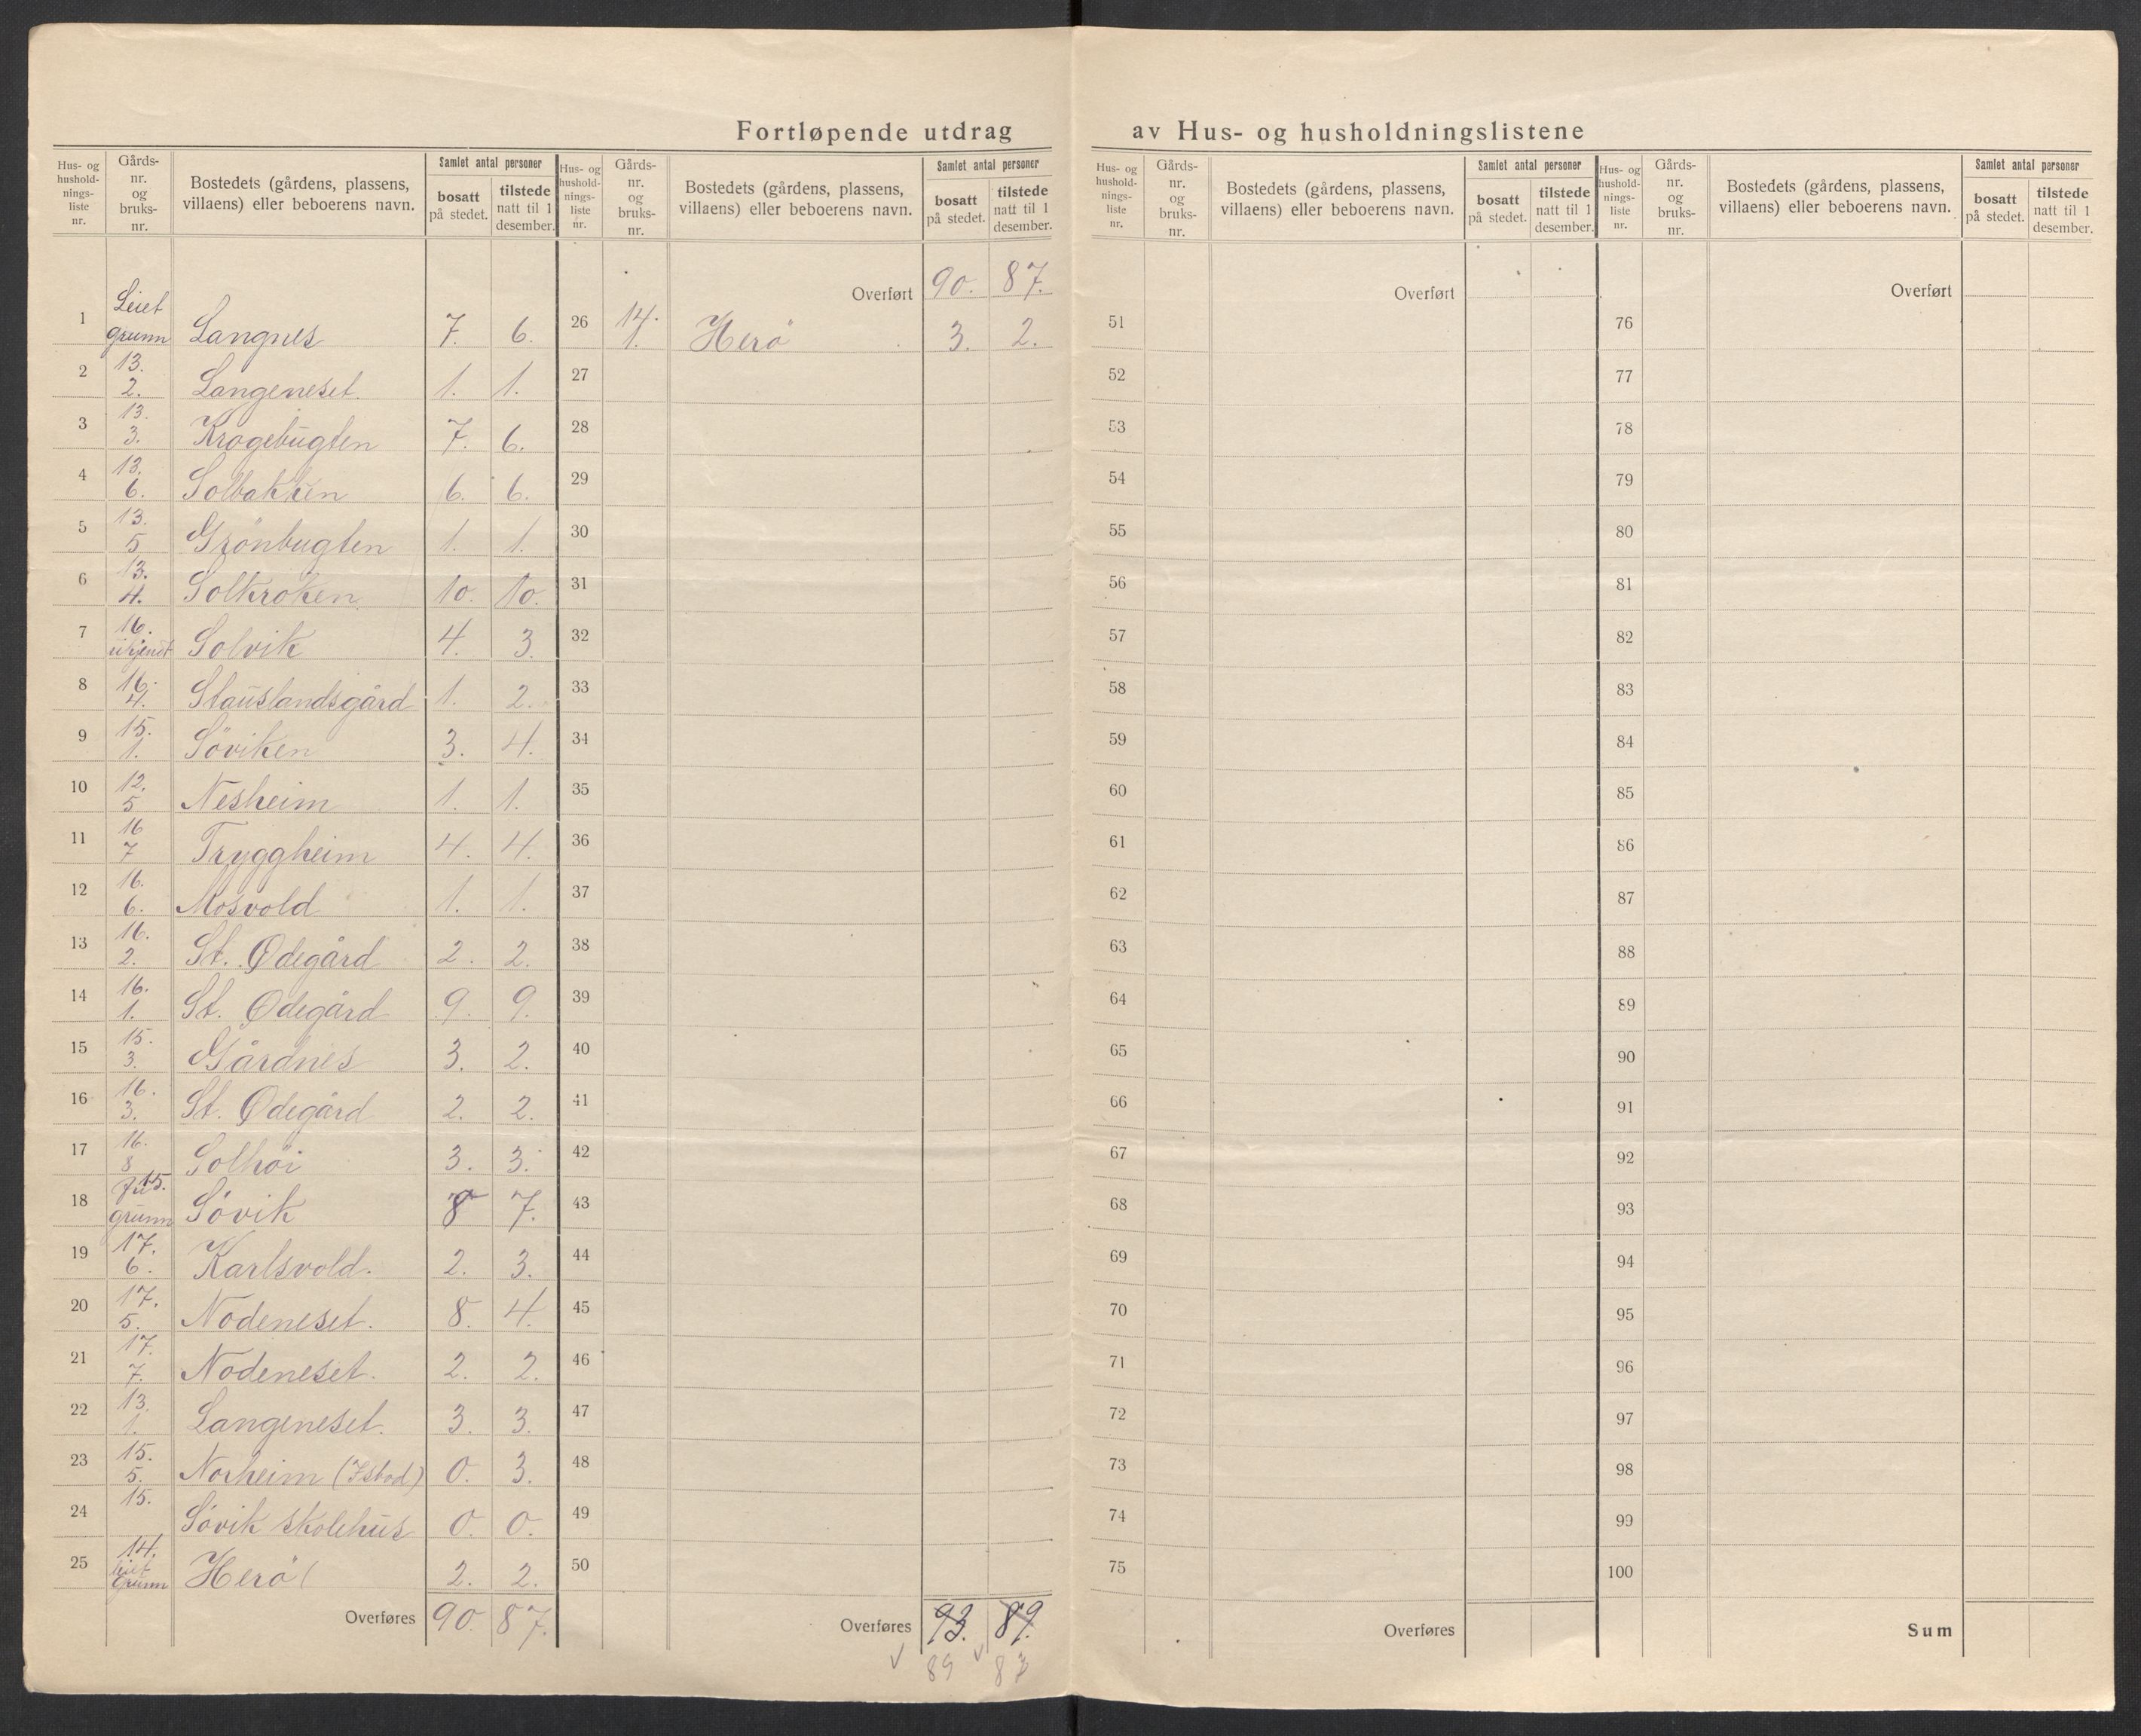 Fortløpende utdrag av Hus- og husholdningslistene
Hus- og husholdningsliste nr. Gårds-nr. og bruks-nr. Bostedets (gårdens, plassens, villaens) eller beboerens navn. Samlet antal personer bosatt på stedet. tilstede natt til 1 desember.
Hus- og husholdningsliste nr. Gårds-nr. og bruks-nr. Bostedets (gårdens, plassens, villaens) eller beboerens navn. Samlet antal personer bosatt på stedet. tilstede natt til 1 desember.
Hus- og husholdningsliste nr. Gårds-nr. og bruks-nr. Bostedets (gårdens, plassens, villaens) eller beboerens navn. Samlet antal personer bosatt på stedet. tilstede natt til 1 desember.
Hus- og husholdningsliste nr. Gårds-nr. og bruks-nr. Bostedets (gårdens, plassens, villaens) eller beboerens navn. Samlet antal personer bosatt på stedet. tilstede natt til 1 desember.
1 Leiet grunn Langnes 7. 6.
2 13. 2. Langeneset. 1. 1.
3 13. 3. Krogebugten 7. 6.
4 13. 6. Solbakken 6. 6.
5 13. 5 Grönbugten 1. 1.
6 13. 4. Solkroken 10. 10.
7 16. Solvik 4. 3.
8 16. 4. Stauslandsgård 1. 2.
9 15. 1. Söviken 3. 4.
10 12. 5 Nesheim 1. 1.
11 16 7 Tryggheim 4. 4.
12 16. 6. Mosvold 1. 1.
13 16. 2. St. Ødegård 2. 2.
14 16. 1. St. Ødegård 9. 9.
15 15. 3. Gårdnes 3. 2.
16 16. 3. St. Ødegård 2. 2.
17 16. 8 Solhöi 3. 3.
18 15. grunn Sövik 8 7.
19 17. 6. Karlsvold. 2. 3.
20 17. 5. Nodeneset. 8. 4.
21 17. 7. Nodeneset. 2. 2.
22 13. 1. Langeneset. 3. 3.
23 15. 5. Norheim 0. 3.
24 15. Sövik skolehus 0. 0.
25 14. leiet Grunn Herö 2. 2.
Overføres 90. 87.
Overført 90. 87.
26 14. 1. Herö 3. 2.
27
28
29
30
31
32
33
34
35
36
37
38
39
40
41
42
43
44
45
46
47
48
49
50
Overføres 93. 89.
89 87
Overført
51
52
53
54
55
56
57
58
59
60
61
62
63
64
65
66
67
68
69
70
71
72
73
74
75
Overføres
Overført
76
77
78
79
80
81
82
83
84
85
86
87
88
89
90
91
92
93
94
95
96
97
98
99
100
Sum